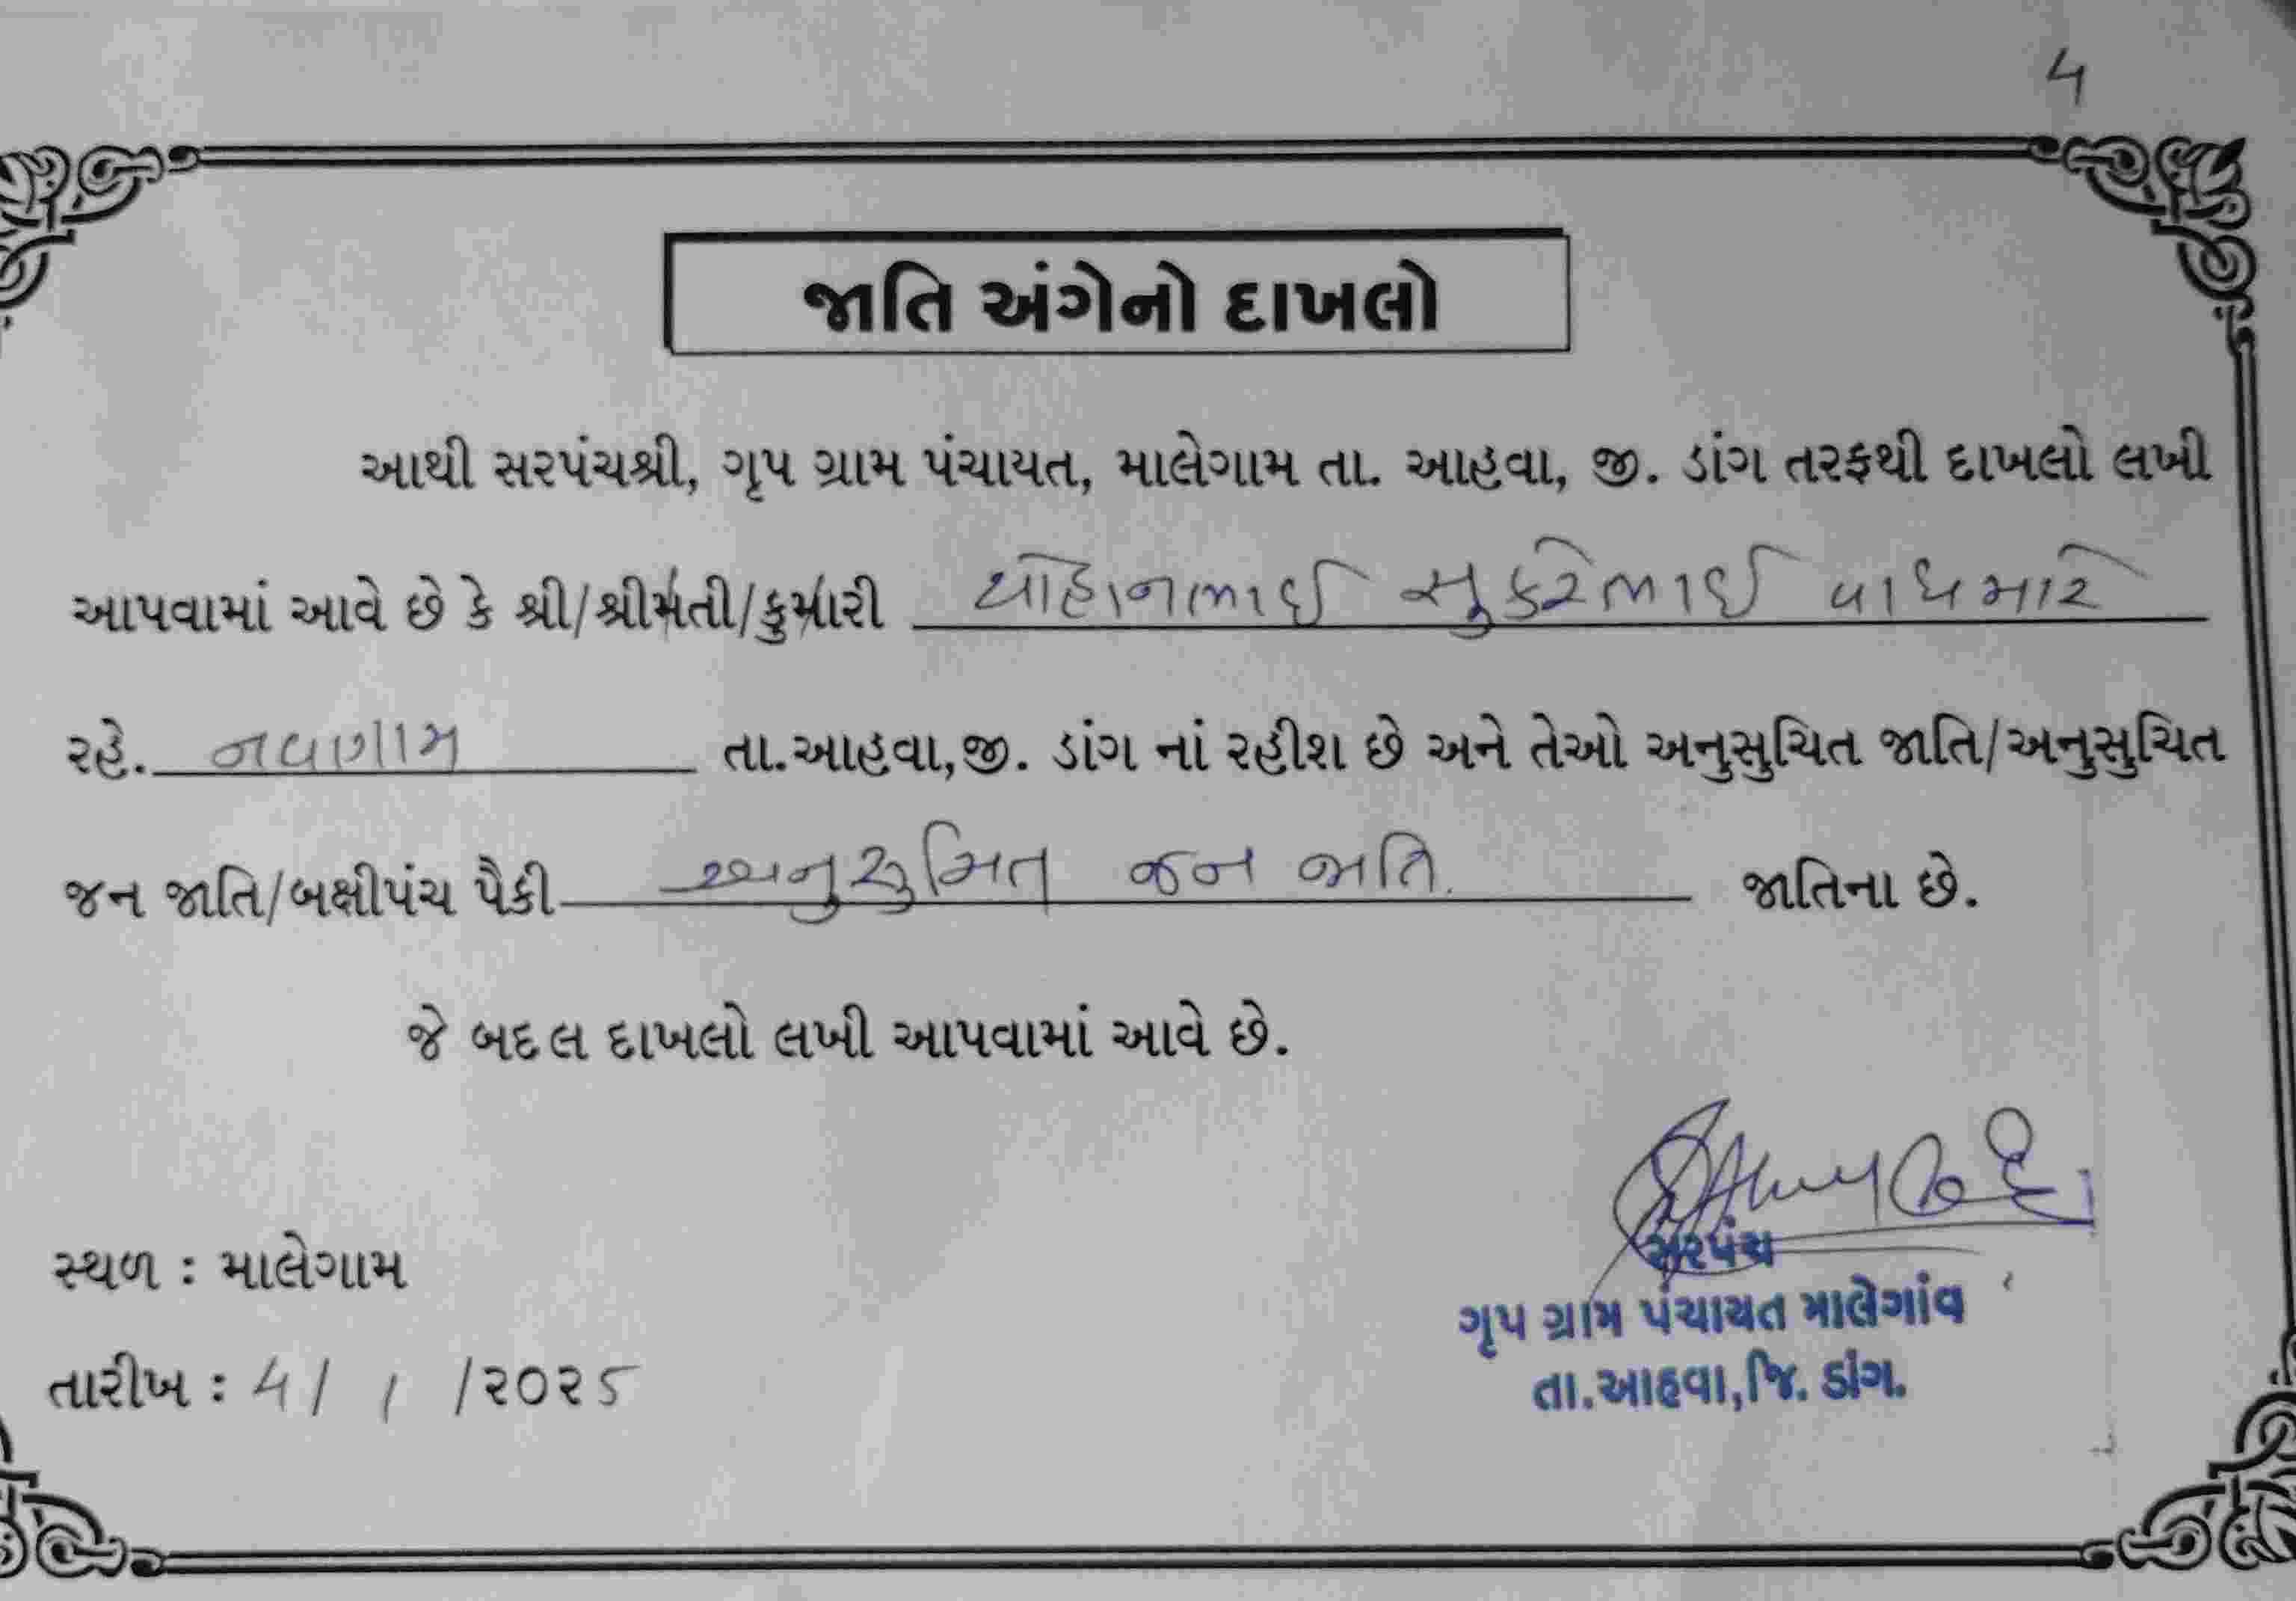 ૫
જાતિ અંગેનો દાખલો
આથી સરપંચશ્રી, ગૃપ ગ્રામ પંચાયત, માલેગામ તા. આહવા, જી. ડાંગ તરફથી દાખલો લખી
આપવામાં આવે છે કે શ્રી/શ્રીમતી/કુમારી યોહાનભાઈ સુકરેભાઈ વાઘમારે
રહે. નવાગામ તા.આહવા,જી. ડાંગ નાં રહીશ છે અને તેઓ અનુસુચિત જાતિ/અનુસુચિત
જન જાતિ/બક્ષીપંચ પૈકી અનુસુચિત જન જાતિ. જાતિના છે.
જે બદલ દાખલો લખી આપવામાં આવે છે.
સરપંચ
સ્થળ : માલેગામ
ગૃપ ગ્રામ પંચાયત માલેગાંવ
તા.આહવા,જિ. ડાંગ.
તારીખ : ૫/ ૧ /૨૦૨૬